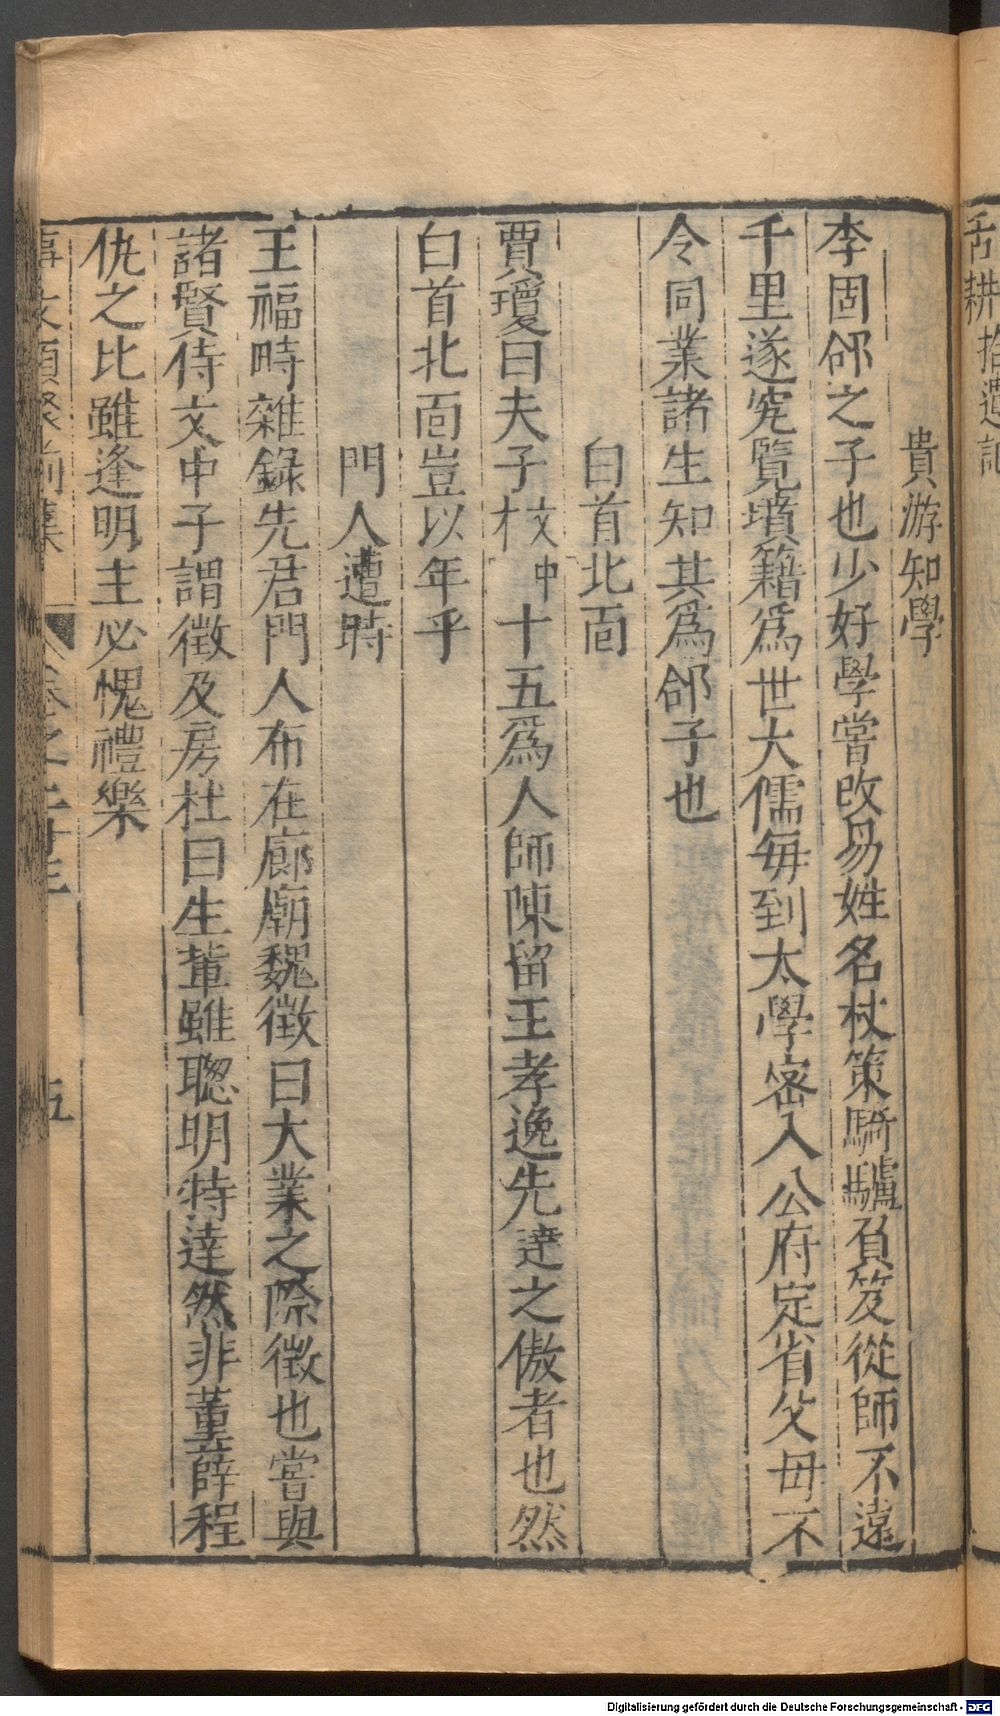 舌耕拾遺記
貴游知學
李固郃之子也少好學嘗改易姓名杖策騎驢負笈從師不遠
千里遂究覽墳籍爲世大儒每到太學密入公府定省父母不
令同業諸生知其爲郃子也
白首北面
賈瓊曰夫子校中十五爲人師陳留王孝逸先達之傲者也然
白首北面豈以年乎
門人遭時
王福畤雜錄先君門人布在廊廟魏徵曰大業之際徵也嘗與
諸賢侍文中子謂徵及房杜曰生輩雖聰明特達然非董薛程
仇之比雖逢明主必愧禮樂
事文類聚前集 卷之二十三 五
Digitalisierung gefördert durch die Deutsche Forschungsgemeinschaft - DFG